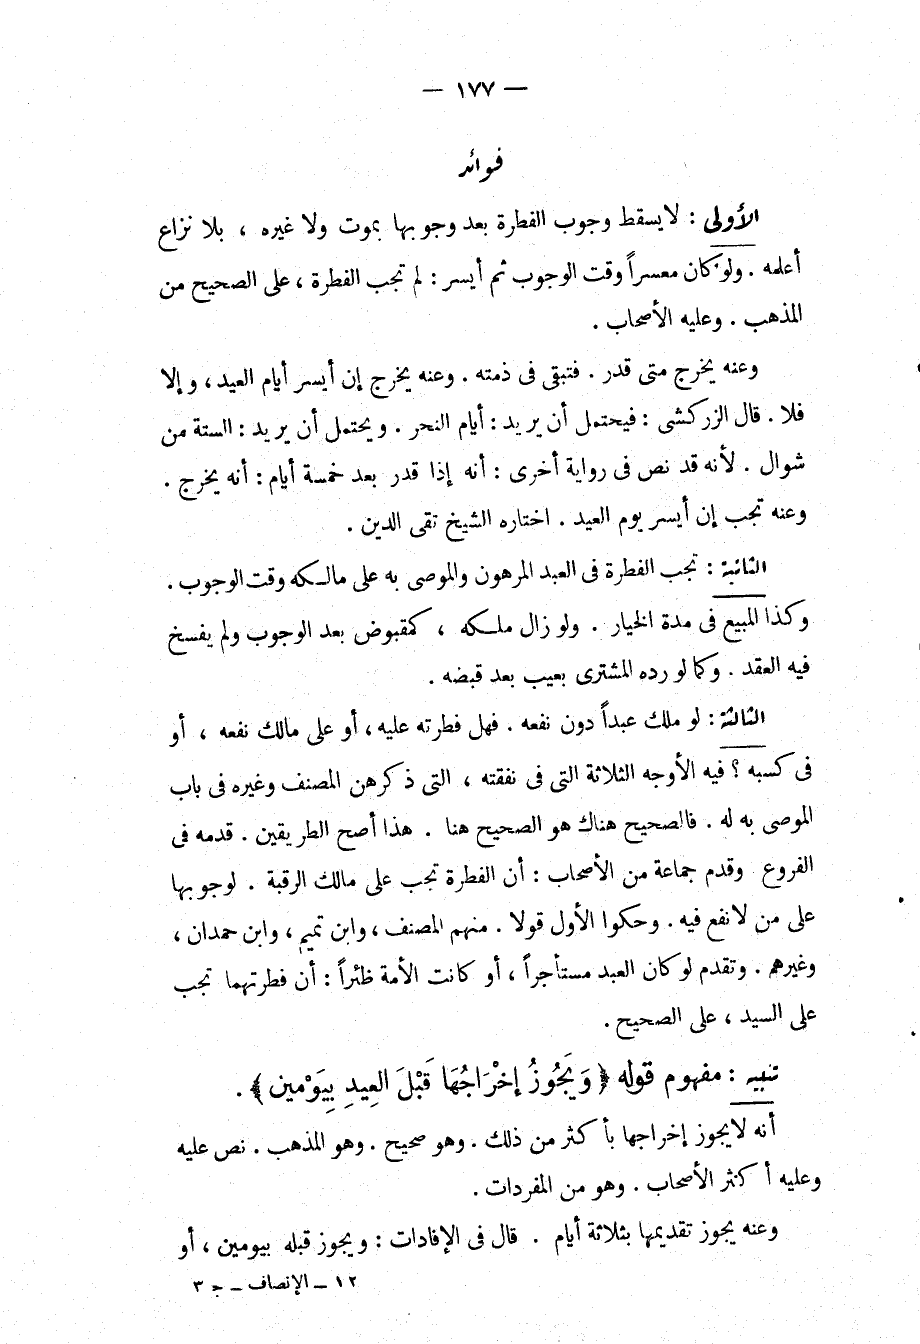 — ١٧٧ —
فوائد
الأولى : لا يسقط وجوب الفطرة بعد وجوبها بموت ولا غيره ، بلا نزاع
أعلمه . ولو كان معسراً وقت الوجوب ثم أيسر : لم تجب الفطرة ، على الصحيح من
المذهب . وعليه الأصحاب .
وعنه يخرج متى قدر . فتبقى فى ذمته . وعنه يخرج إن أيسر أيام العيد ، وإلا
فلا . قال الزركشى : فيحتمل أن يريد : أيام النحر . ويحتمل أن يريد : الستة من
شوال . لأنه قد نص فى رواية أخرى : أنه إذا قدر بعد خمسة أيام : أنه يخرج .
وعنه تجب إن أيسر يوم العيد . اختاره الشيخ تقى الدين .
الثانية : تجب الفطرة فى العبد المرهون والموصى به على مالكه وقت الوجوب .
وكذا المبيع فى مدة الخيار . ولو زال ملكه ، كمقبوض بعد الوجوب ولم يفسخ
فيه العقد . وكما لو رده المشترى بعيب بعد قبضه .
الثالثة : لو ملك عبداً دون نفعه . فهل فطرته عليه ، أو على مالك نفعه ، أو
فى كسبه ؟ فيه الأوجه الثلاثة التى فى نفقته ، التى ذكرهن المصنف وغيره فى باب
الموصى به له . فالصحيح هناك هو الصحيح هنا . هذا أصح الطريقين . قدمه فى
الفروع وقدم جماعة من الأصحاب : أن الفطرة تجب على مالك الرقبة . لوجوبها
على من لا نفع فيه . وحكوا الأول قولا . منهم المصنف ، وابن تميم ، وابن حمدان ،
وغيرهم . وتقدم لو كان العبد مستأجراً ، أو كانت الأمة ظئراً : أن فطرتهما تجب
على السيد ، على الصحيح .
تنبيه : مفهوم قوله ﴿ وَيَجُوزُ إخْرَاجُهَا قَبْلَ العِيدِ بِيَوْمين ﴾ .
أنه لا يجوز إخراجها بأكثر من ذلك . وهو صحيح . وهو المذهب . نص عليه
وعليه أكثر الأصحاب . وهو من المفردات .
وعنه يجوز تقديمها بثلاثة أيام . قال فى الإفادات : ويجوز قبله بيومين ، أو
١٢ ــ الإنصاف ــ جـ ٣